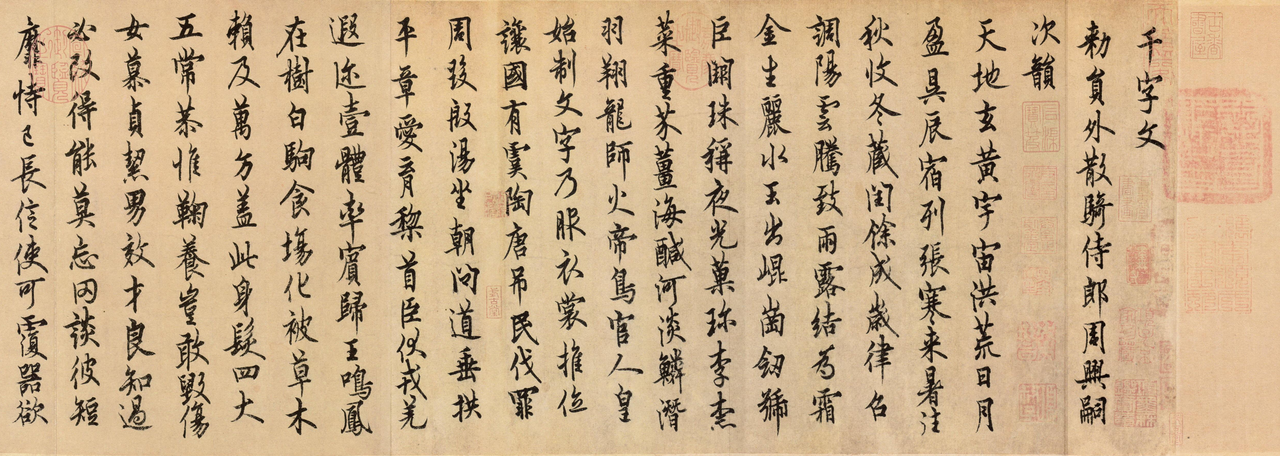 千字文
勑員外散騎侍郎周興嗣
次韻
天地玄黃宇宙洪荒日月
盈昃辰宿列張寒来暑往
秋收冬藏閏餘成歲律召
調陽雲騰致雨露結為霜
金生麗水玉出崐崗劒號
巨闕珠稱夜光菓珎李柰
菜重芥薑海鹹河淡鱗潛
羽翔龍師火帝鳥官人皇
始制文字乃服衣裳推位
讓國有虞陶唐吊民伐罪
周發殷湯坐朝問道垂拱
平章愛育黎首臣伏戎羌
遐迩壹體率賓歸王鳴鳳
在樹白駒食場化被草木
賴及萬方盖此身髮四大
五常恭惟鞠養豈敢毀傷
女慕貞絜男效才良知過
必改得能莫忘罔談彼短
靡恃己長信使可覆器欲